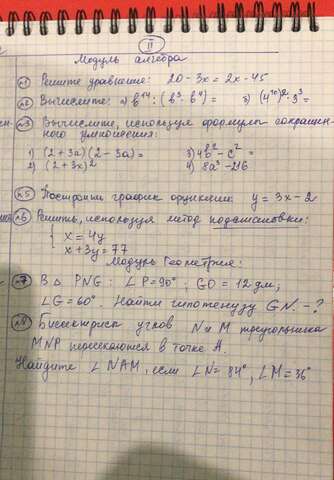 II
Модуль алгебра
№1 Решите уравнение: 20 - 3x = 2x - 45
№2 Вычислите: а) b¹⁴ : (b³ · b⁴) = б)
№3 Вычислите, используя формулы сокращен-
ного умножения:
1) (2+3a)(2-3a) = 3) 4b² - c² =
2) (2+3x)² 4) 8a³ - 216
№5 Построить график функции y = 3x - 2
№6 Решить, используя метод подстановки:
{ x = 4y
x + 3y = 77
Модуль Геометрия:
№7 В Δ PNG: ∠P = 90°; GO = 12 дм;
∠G = 60°. Найти гипотенузу GN. - ?
№8 Биссектрисы углов N и M треугольника
MNP пересекаются в точке A.
Найдите ∠NAM, если ∠N = 84°, ∠M = 36°